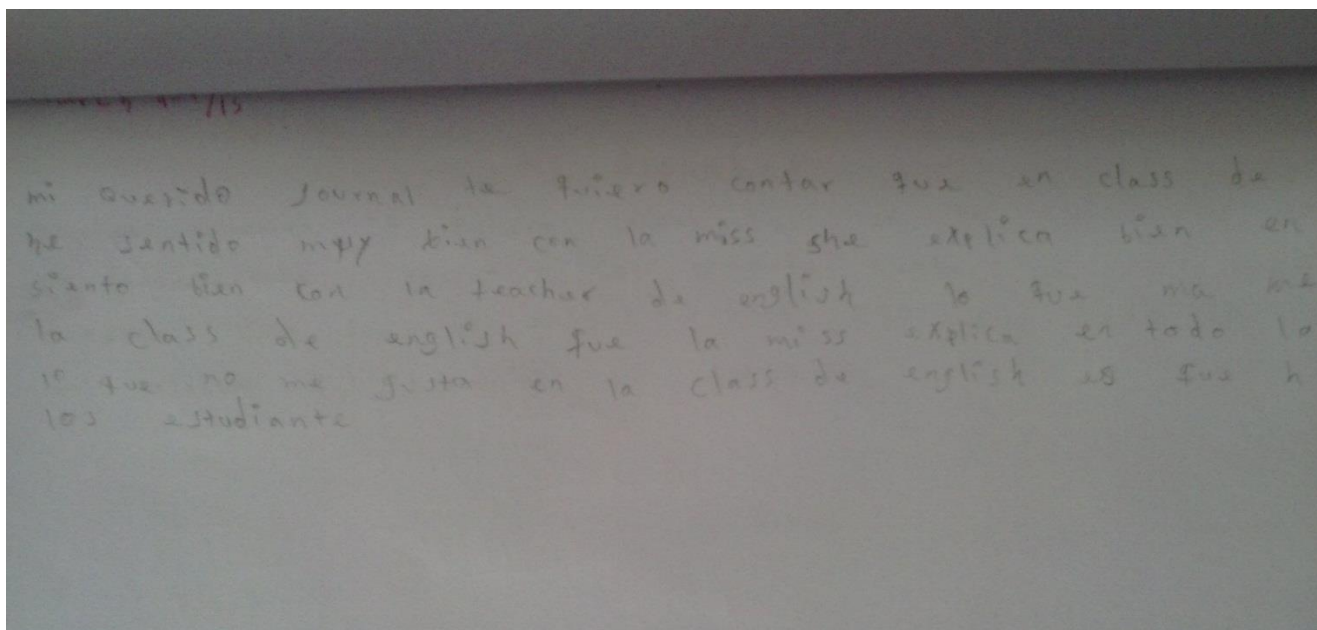 /15
mi querido Journal te quiero contar que en class de
he sentido muy bien con la miss she explica bien en
siento bien con la teacher de english lo que ma me
la class de english que la miss explica en todo lo
lo que no me gusta en la class de english es que h
los estudiante